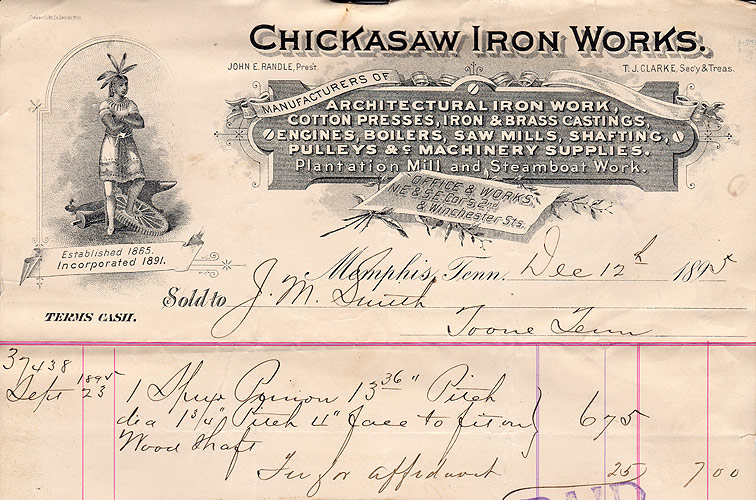 CHICKASAW IRON WORKS.
JOHN E. RANDLE, Pres't.
T. J. CLARKE, Sec'y & Treas.
MANUFACTURERS OF
ARCHITECTURAL IRON WORK,
COTTON PRESSES, IRON & BRASS CASTINGS,
ENGINES, BOILERS, SAW MILLS, SHAFTING,
PULLEYS &c MACHINERY SUPPLIES.
Plantation Mill and Steamboat Work.
OFFICE & WORKS,
N.E & S.E Cor's. 2nd
& Winchester Sts.
Established 1865.
Incorporated 1891.
Memphis, Tenn. Dec 12th 1895
Sold to J. M. Smith
TERMS CASH.
Toone Tenn
37438
Sept 1895 23 1 Spur Pinion 13 36" Pitch
dia 1 3/4" Pitch 4" face to fit on 675
Wood Shaft
affidavit 25 700
PAID